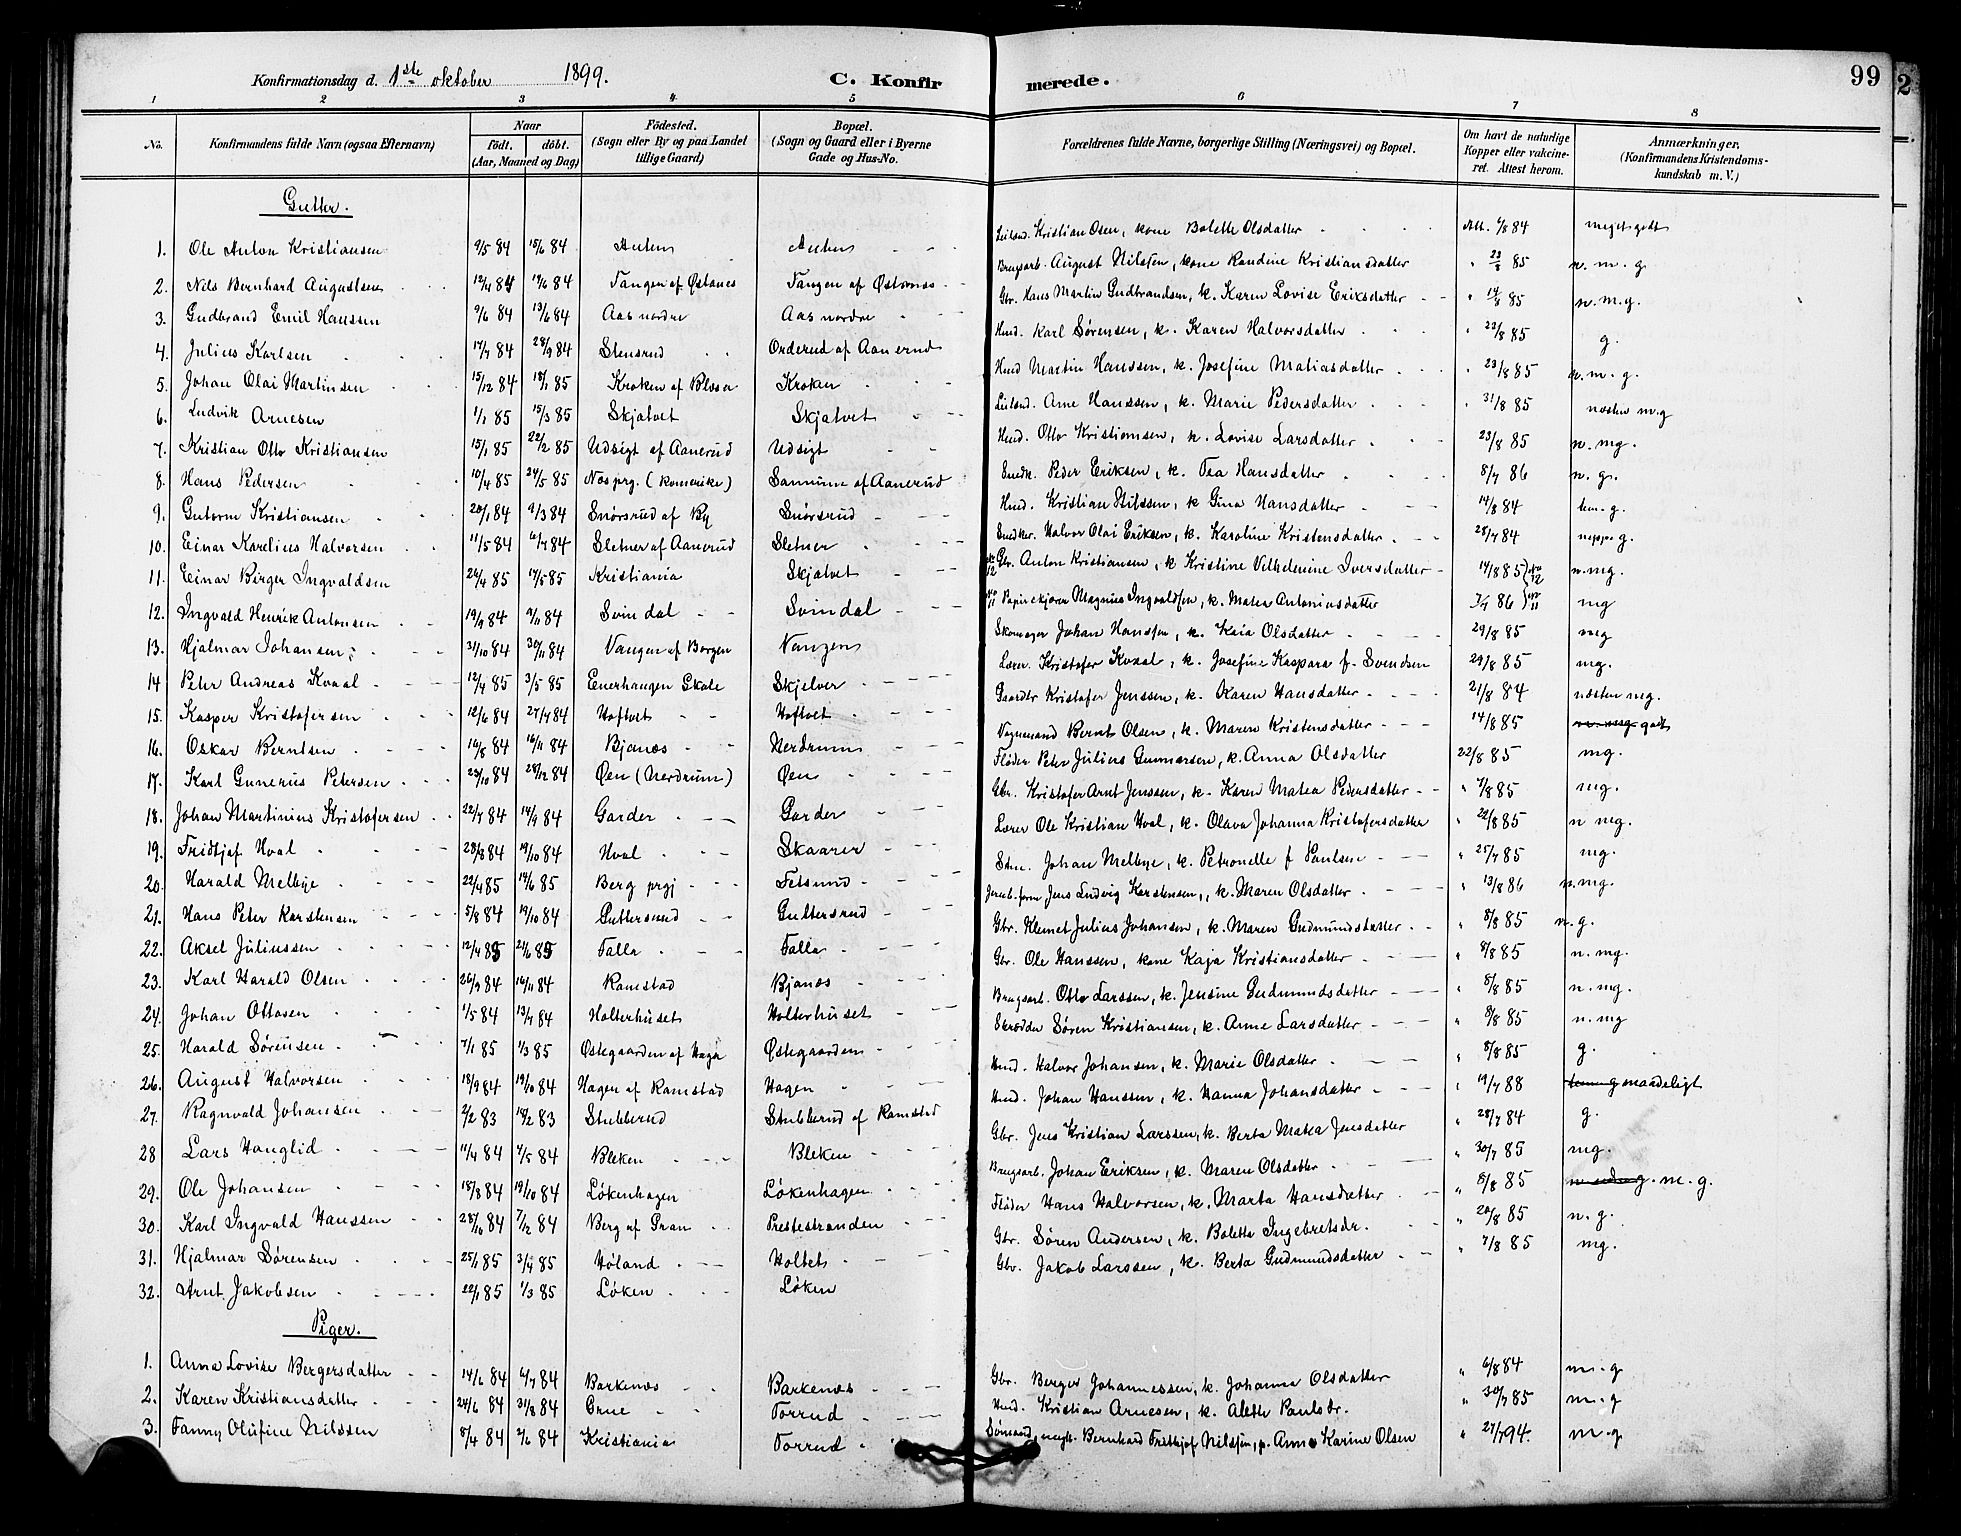 Konfirmationsdag d. 1ste oktober 1899. C. Konfirmerede. 99
1 2 3 4 5 6 7 8
No. Konfirmandens fulde Navn (ogsaa Efternavn) Naar födt. döbt. (Aar, Maaned og Dag) Födested. (Sogn eller By og paa Landet tillige Gaard) Bopæl. (Sogn og Gaard eller i Byerne Gade og Hus-No. Forældrenes fulde Navne, borgerlige Stilling (Næringsvei) og Bopæl. Om havt de naturlige Kopper eller vakcineret. Attest herom. Anmærkninger. (Konfirmandens Kristendomskundskab m. V.)
Gutter.
1. Ole Anton Kristiansen 9/5 84 15/6 84 Kristian Osen, kone Bolette Olsdatter 84 meget godt
2. Nils Bernhard Augustsen 12/4 84 84 Tangen af Østanes Tangen af Østanes Brugsarb. August Nilssen, kone Randine Kristiansdatter 85 n. m. g.
3. Gudbrand Emil Hanssen 9/6 84 13/6 84 Aas nordre Aas nordre Gbr. Hans Martin Gudbrandsen, k. Karen Lovise Eriksdatter 85 n. m. g.
4. Julius Karlsen 17/7 84 28/9 84 Stensrud Orderud af Aanerud Hmd. Karl Sørensen, k. Karen Halvorsdatter 22/8 85 g.
5. Johan Olai Martinsen 15/12 84 18/1 85 Kroken Kroken Hmd Martin Hanssen, k. Josefine Matiasdatter 23/8 85 n. m. g.
6. Ludvik Arnesen 1/1 85 15/3 85 Skjatvet Skjatvet Leiland. Arne Hanssen, k. Marie Pedersdatter 31/8 85 næsten m.g
7. Kristian Otto Kristiansen 15/1 85 22/2 85 Udsigt af Aanerud Udsigt Hmd. Otto Kristiansen, k. Lovise Larsdatter 23/8 85 n. mg.
8. Hans Pedersen 10/4 85 24/5 85 Næs prg. (Romerike) af Aanerud Snedk. Peder Eriksen, k. Tea Hansdatter 8/7 86 n. g.
9. Gutorm Kristiansen 20/1 84 9/3 84 Snörsrud af By Snörsrud Hmd. Kristian Nilssen, k Gina Hansdatter 14/8 84 tem. g.
10. Einar Karelius Halvorsen 11/5 84 6/7 84 Sletner af Aanerud Sletner Snedker. Halvor Olai Eriksen, k. Karoline Kristensdatter 28/7 84 neppe g.
11. Einar Birger Ingvaldsen 26/4 85 17/5 85 Kristiania Skjatvet No 12 Gbr. Anton Kristiansen, k Kristine Vilhelmine Iversdatter 14/8 85 No 12 n. mg.
12. Ingvald Henrik Antonsen 19/9 84 9/11 84 Svindal Svindal No 11 Magnus Ingvaldsen, k. Matea Antoniusdatter 86 No 11 mg
13. Hjalmar Johansen 31/10 84 30/11 84 Vangen af Borgen Vangen Skomager Johan Hanssen, k. Kaia Olsdatter 29/8 85 mg
14 Peter Andreas Kvaal 12/4 85 3/5 85 Enerhaugen Skole Skjelver Lærer. Kristofer Kvaal, k. Josefine Kaspara f. Svendsen 29/8 85 mg.
15. Kasper Kristofersen 12/6 84 27/7 84 Hoftvet Hoftvet Gaardbr Kristofer Jenssen, k. Karen Hansdatter 21/8 84 næsten mg.
16. Oskar Berntsen 16/8 84 16/11 84 Bjanæs Nerdrum Vognmand Bernt Olsen, k. Maren Kristensdatter 14/8 85 godt
17. Karl Gunerius Petersen 23/10 84 28/12 84 Øen (Nerdrum) Øen Fløder Peter Julius Gunnarsen, k. Anna Olsdatter 22/8 85 mg.
18. Johan Martinius Kristofersen 22/7 84 14/9 84 Garder Garder Gbr. Kristofer Arnt Jenssen, k. Karen Matea Pedersdatter 85 mg.
19. Fridtjof Hval 28/8 84 19/10 84 Hval Skaarer Lærer Ole Kristian Hval, k. Olava Johanna Kristofersdatter 22/8 85 n mg.
20. Harald Melbye 22/4 85 14/6 85 Berg prgj Fetsund Johan Melbye, k. Petronelle f Paulsen 25/7 85 mg.
21. Hans Peter Karstensen 5/8 84 19/10 84 Guttersrud Guttersrud Jens Ludvig Karstensen, k. Maren Olsdatter 13/8 86 n. mg.
22. Aksel Juliussen 12/4 85 21/6 85 Falla Falla Gbr. Klemet Julius Johansen, k. Maren Gudmundsdatter 8/8 85 m. g.
23. Karl Harald Olsen 26/9 84 16/11 84 Ramstad Bjanæs Gbr. Ole Hanssen, kone Kaja Kristiansdatter 8/8 85 n. mg.
24. Johan Ottosen 1/5 84 13/7 84 Holterhuset Holterhuset Brugsarb. Otto Larssen, k. Jensine Gudmundsdatter 8/8 85 n. mg.
25. Harald Sørensen 7/1 85 1/3 85 Østegaarden af Haga Østegaarden Skrædder Søren Kristiansen, k. Anne Larsdatter 8/8 85 n. mg
26. August Halvorsen 18/9 84 19/10 84 Hagen af Ramstad Hagen Hmd. Halvor Johansen, k. Marie Olsdatter 8/8 85 g.
27. Ragnvald Johansen 2/2 83 18/2 83 Stubberud Stubberud af Ramstad Hmd. Johan Hanssen, k. Hanna Johansdatter 19/7 88 maadeligt
28 Lars Hanglid 11/4 84 84 Bleken Bleken Gbr. Jens Kristian Larssen, k. Berta Matea Jensdatter 28/7 84 g.
29. Ole Johansen 18/8 84 19/10 84 Løkenhagen Løkenhagen Brugsarb. Johan Eriksen, k. Maren Olsdatter 30/7 85 mg.
30. Karl Ingvald Hanssen 28/10 84 7/12 84 Berg af Gran Prestestranden Fløder Hans Halvorsen, k. Marta Hansdatter 8/8 85 m. g.
31. Hjalmar Sørensen 25/1 85 3/4 85 Høland Holtet Gbr. Søren Andersen, k. Bolette Ingebretsdr. 20/8 85 n. g.
32. Arnt Jakobsen 22/1 85 1/3 85 Løken Løken Gbr. Jakob Larssen, k. Berta Gudmundsdatter 7/8 85 mg.
Piger.
1. Anna Lovise Bergersdatter 14/6 84 6/7 84 Barkenæs Barkenæs Gbr. Berger Johannessen, k. Johanna Olsdatter 6/8 84 m. g
2. Karen Kristiansdatter 24/6 84 31/8 84 Grue Torrud Hmd. Kristian Arnesen, k. Alette Paulsdr. 30/7 85 m. g
3. Fanny Olufine Nilssen 8/4 84 84 Kristiania Torrud Sømand, Bernhard Fridthjof Nilssen, p. Anna Karine Olsen 27/7 94. m. g